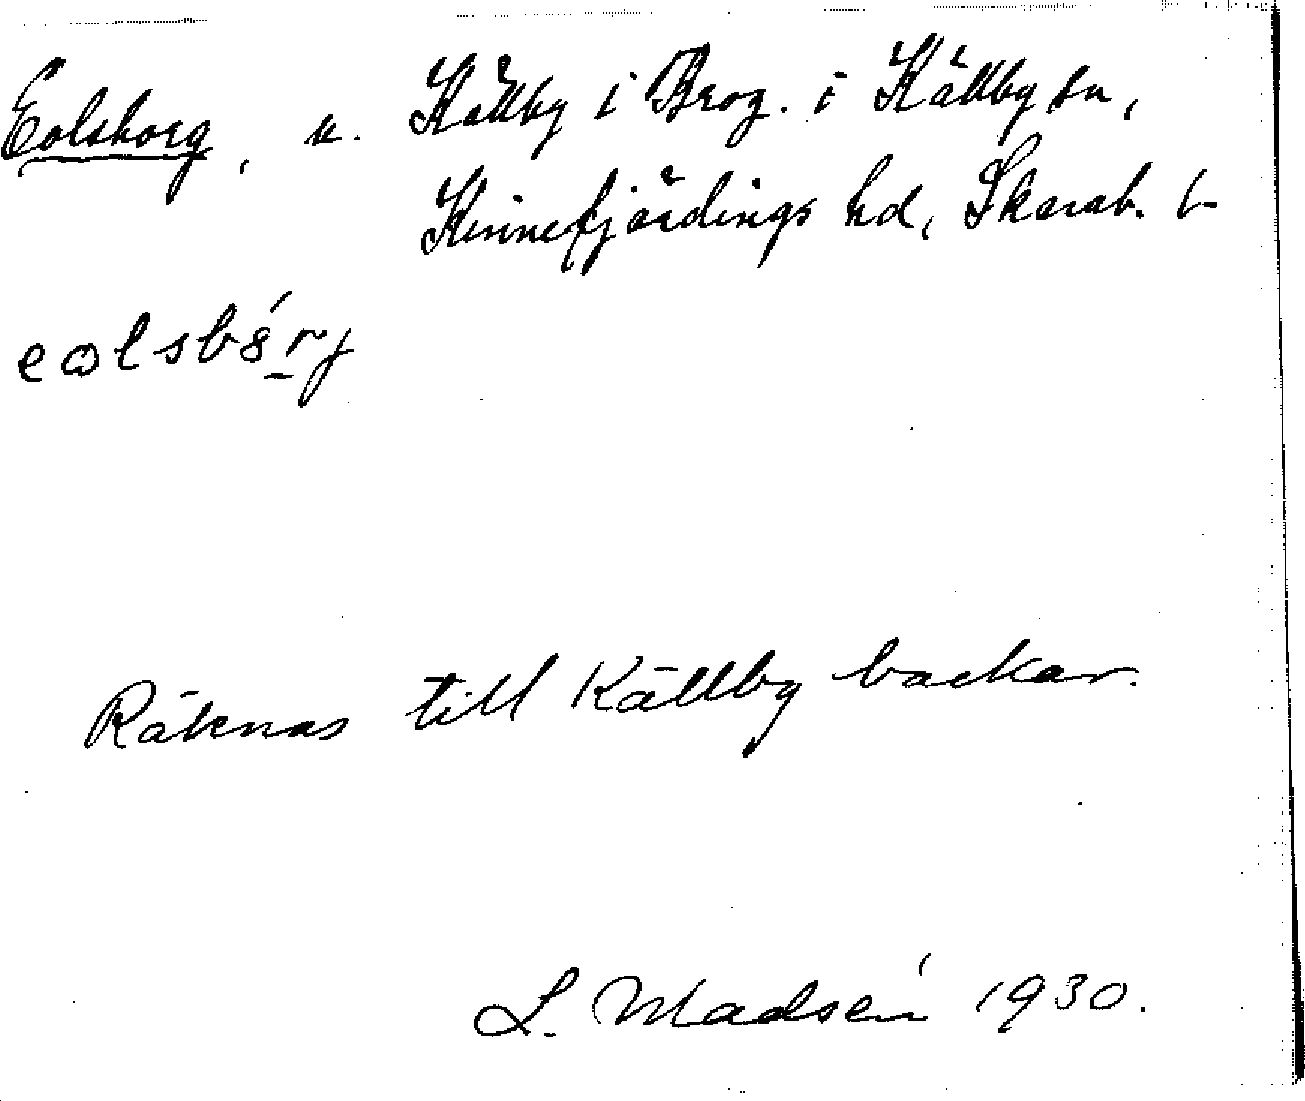 Eolsborg, u. Källby i Brog. i Källby sn,
Kinnefjärdings hd, Skarab. l.
eolsbǿrj
Räknas till Källby backar.
L. Madsén 1930.